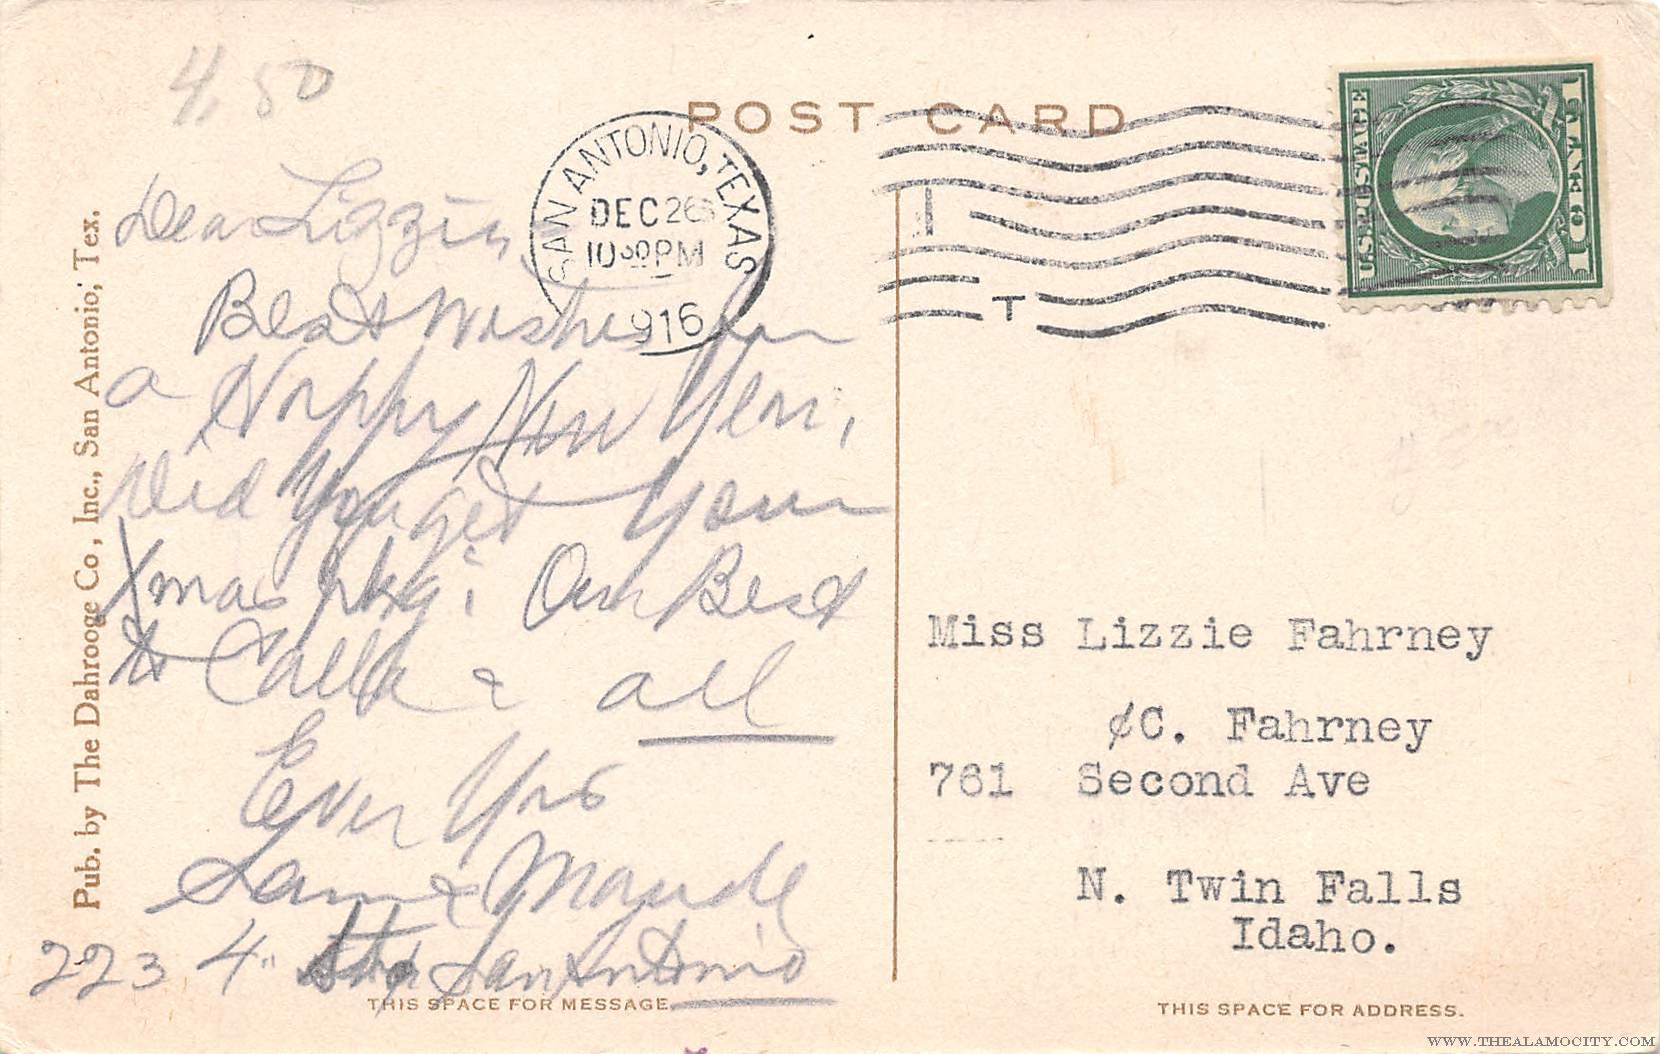 4.50
POST CARD
SAN ANTONIO, TEXAS
DEC 26
10 30 PM
1916
U.S. POSTAGE
1 CENT 1
Pub. by The Dahrooge Co., Inc., San Antonio, Tex.
Dear Lizzie,
Best Wishes for
a Happy New Year,
Did you get your
Xmas pkg; Our Best
to Calla & all
Ever Yrs
Sam & Maude
223 4" San Antonio
THIS SPACE FOR MESSAGE.
Miss Lizzie Fahrney
¢C. Fahrney
761 Second Ave
N. Twin Falls
Idaho.
THIS SPACE FOR ADDRESS.
WWW.THEALAMOCITY.COM